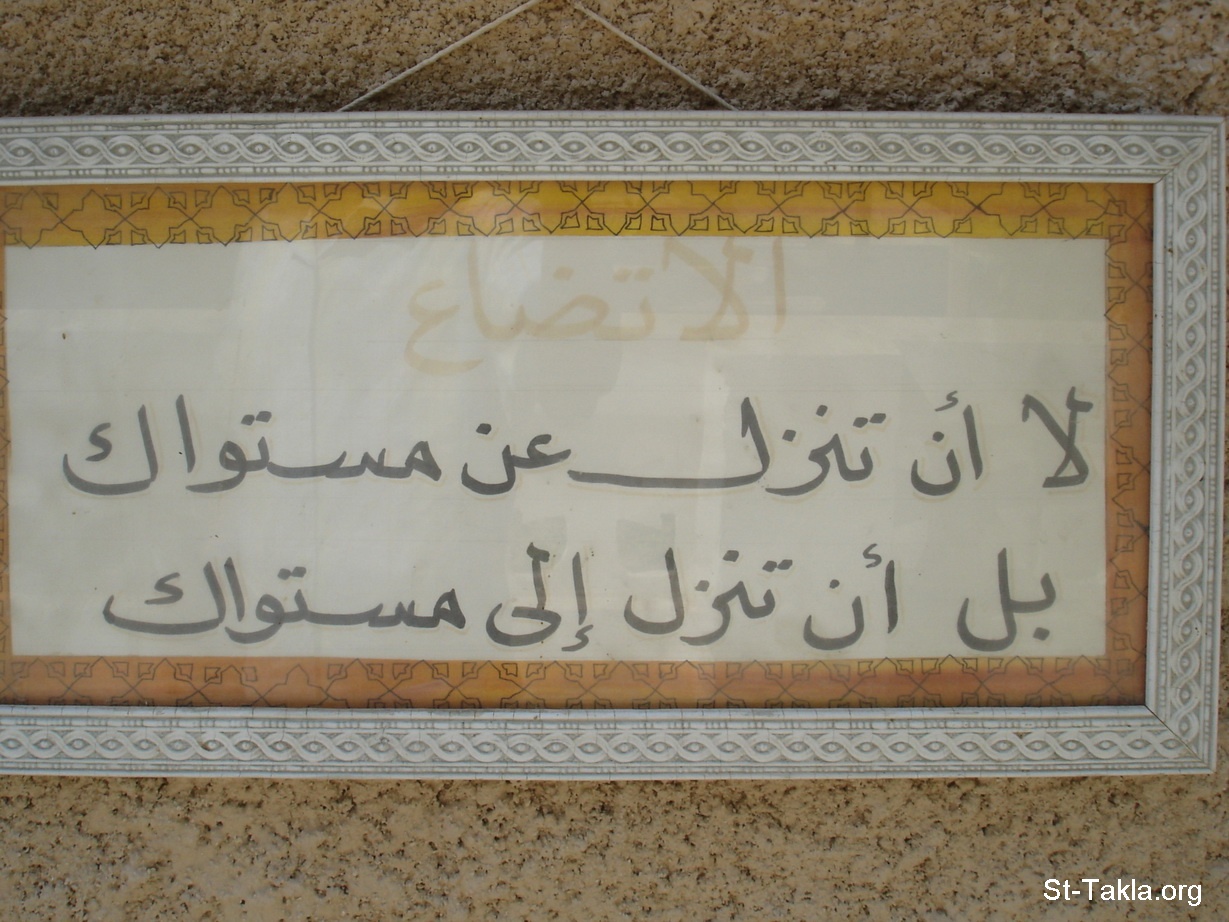 الاتضاع
لا أن تنزل عن مستواك
بل أن تنزل إلى مستواك
St-Takla.org